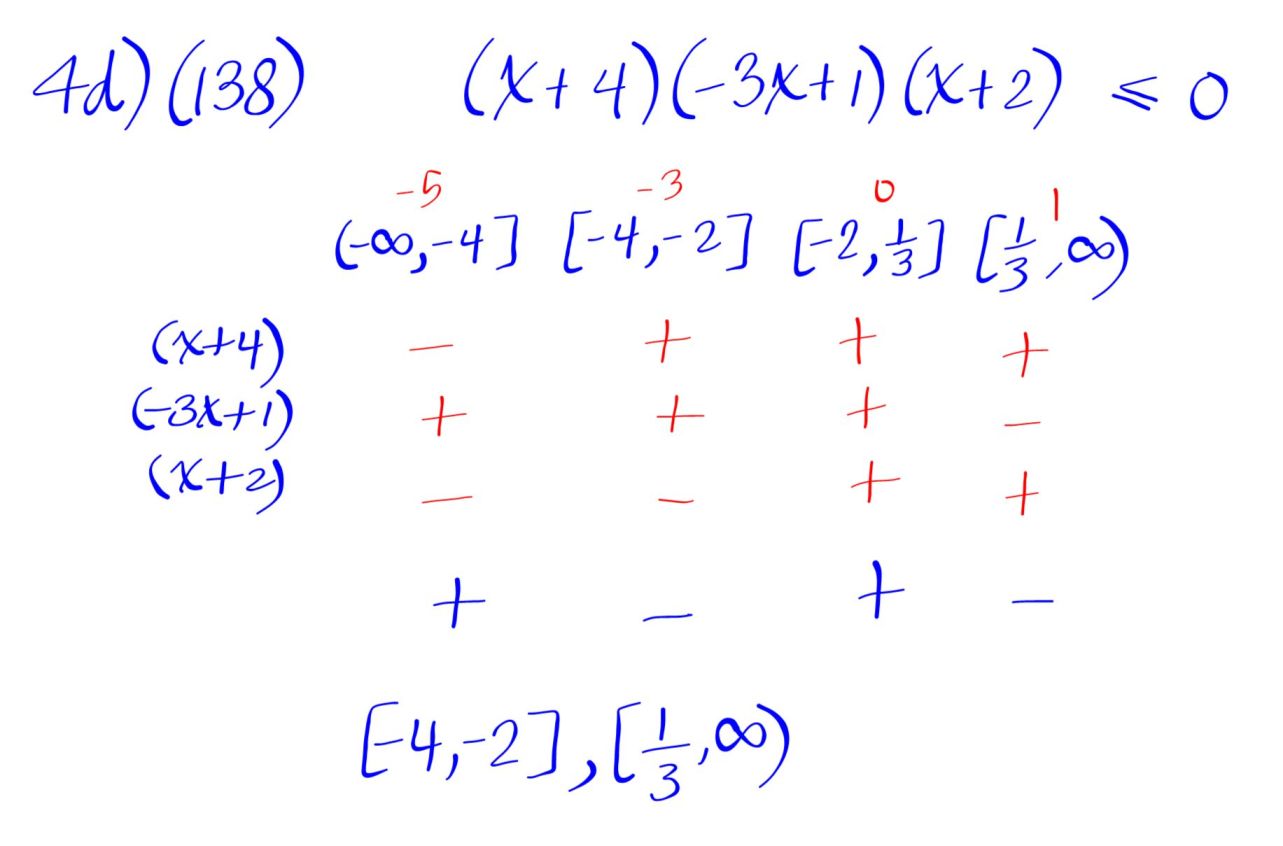 4d) (138) (x+4)(-3x+1)(x+2) ≤ 0
-5 -3 0 1
(-∞,-4] [-4,-2] [-2,1/3] [1/3,∞)
(x+4) − + + +
(-3x+1) + + + −
(x+2) − − + +
+ − + −
[-4,-2], [1/3,∞)